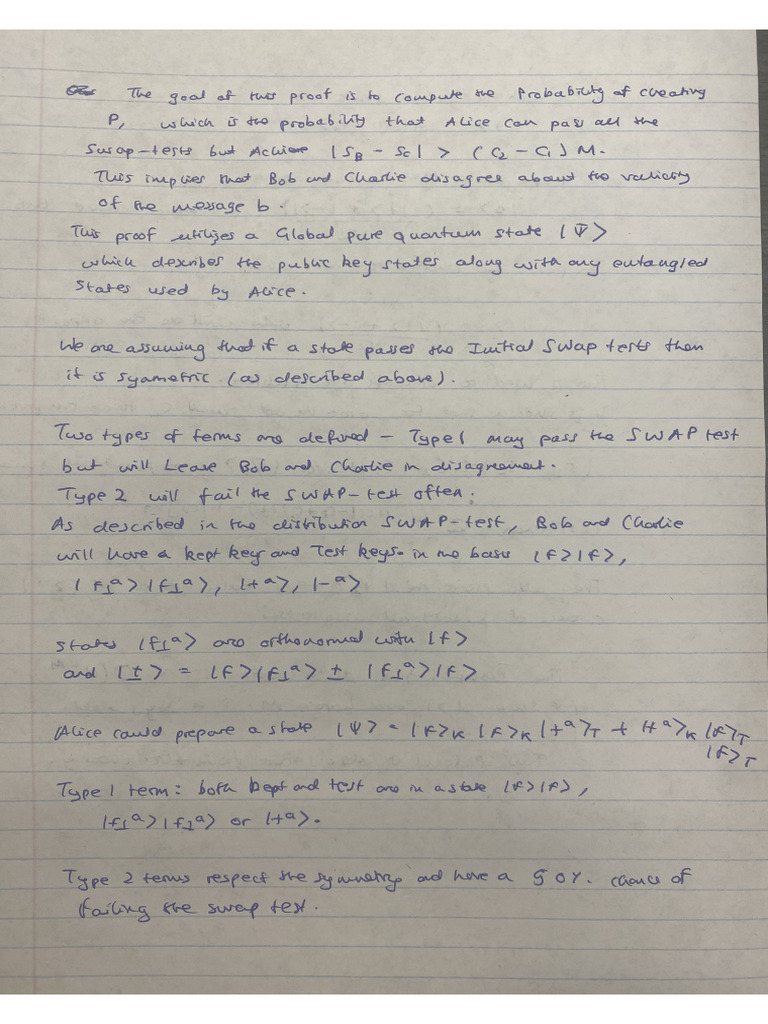 The goal of this proof is to compute the Probability of cheating
P, which is the probability that Alice can pass all the
Swap-tests but Achieve |S_B - S_C| > (C_2 - C_1) M.
This implies that Bob and Charlie disagree about the validity
of the message b.
This proof utilizes a Global pure quantum state |Ψ>
which describes the public key states along with any entangled
states used by Alice.
We are assuming that if a state passes the Initial Swap tests then
it is symetric (as described above).
Two types of terms are defined - Type 1 may pass the SWAP test
but will Leave Bob and Charlie in disagreement.
Type 2 will fail the SWAP-test often.
As described in the distribution SWAP-test, Bob and Charlie
will have a kept key and Test keys. in the basis |f>|f>,
|f⊥^a>|f⊥^a>, |+^a>, |-^a>
states |f⊥^a> are orthonormal with |f>
and |±> = |f>|f⊥^a> ± |f⊥^a>|f>
Alice could prepare a state |Ψ> = |f>_K |f>_K |+^a>_T + |+^a>_K |f>_T
|f>_T
Type 1 term: both kept and test are in a state |f>|f>,
|f⊥^a>|f⊥^a> or |+^a>.
Type 2 terms respect the symmetry and have a 50%. chance of
failing the swap test.